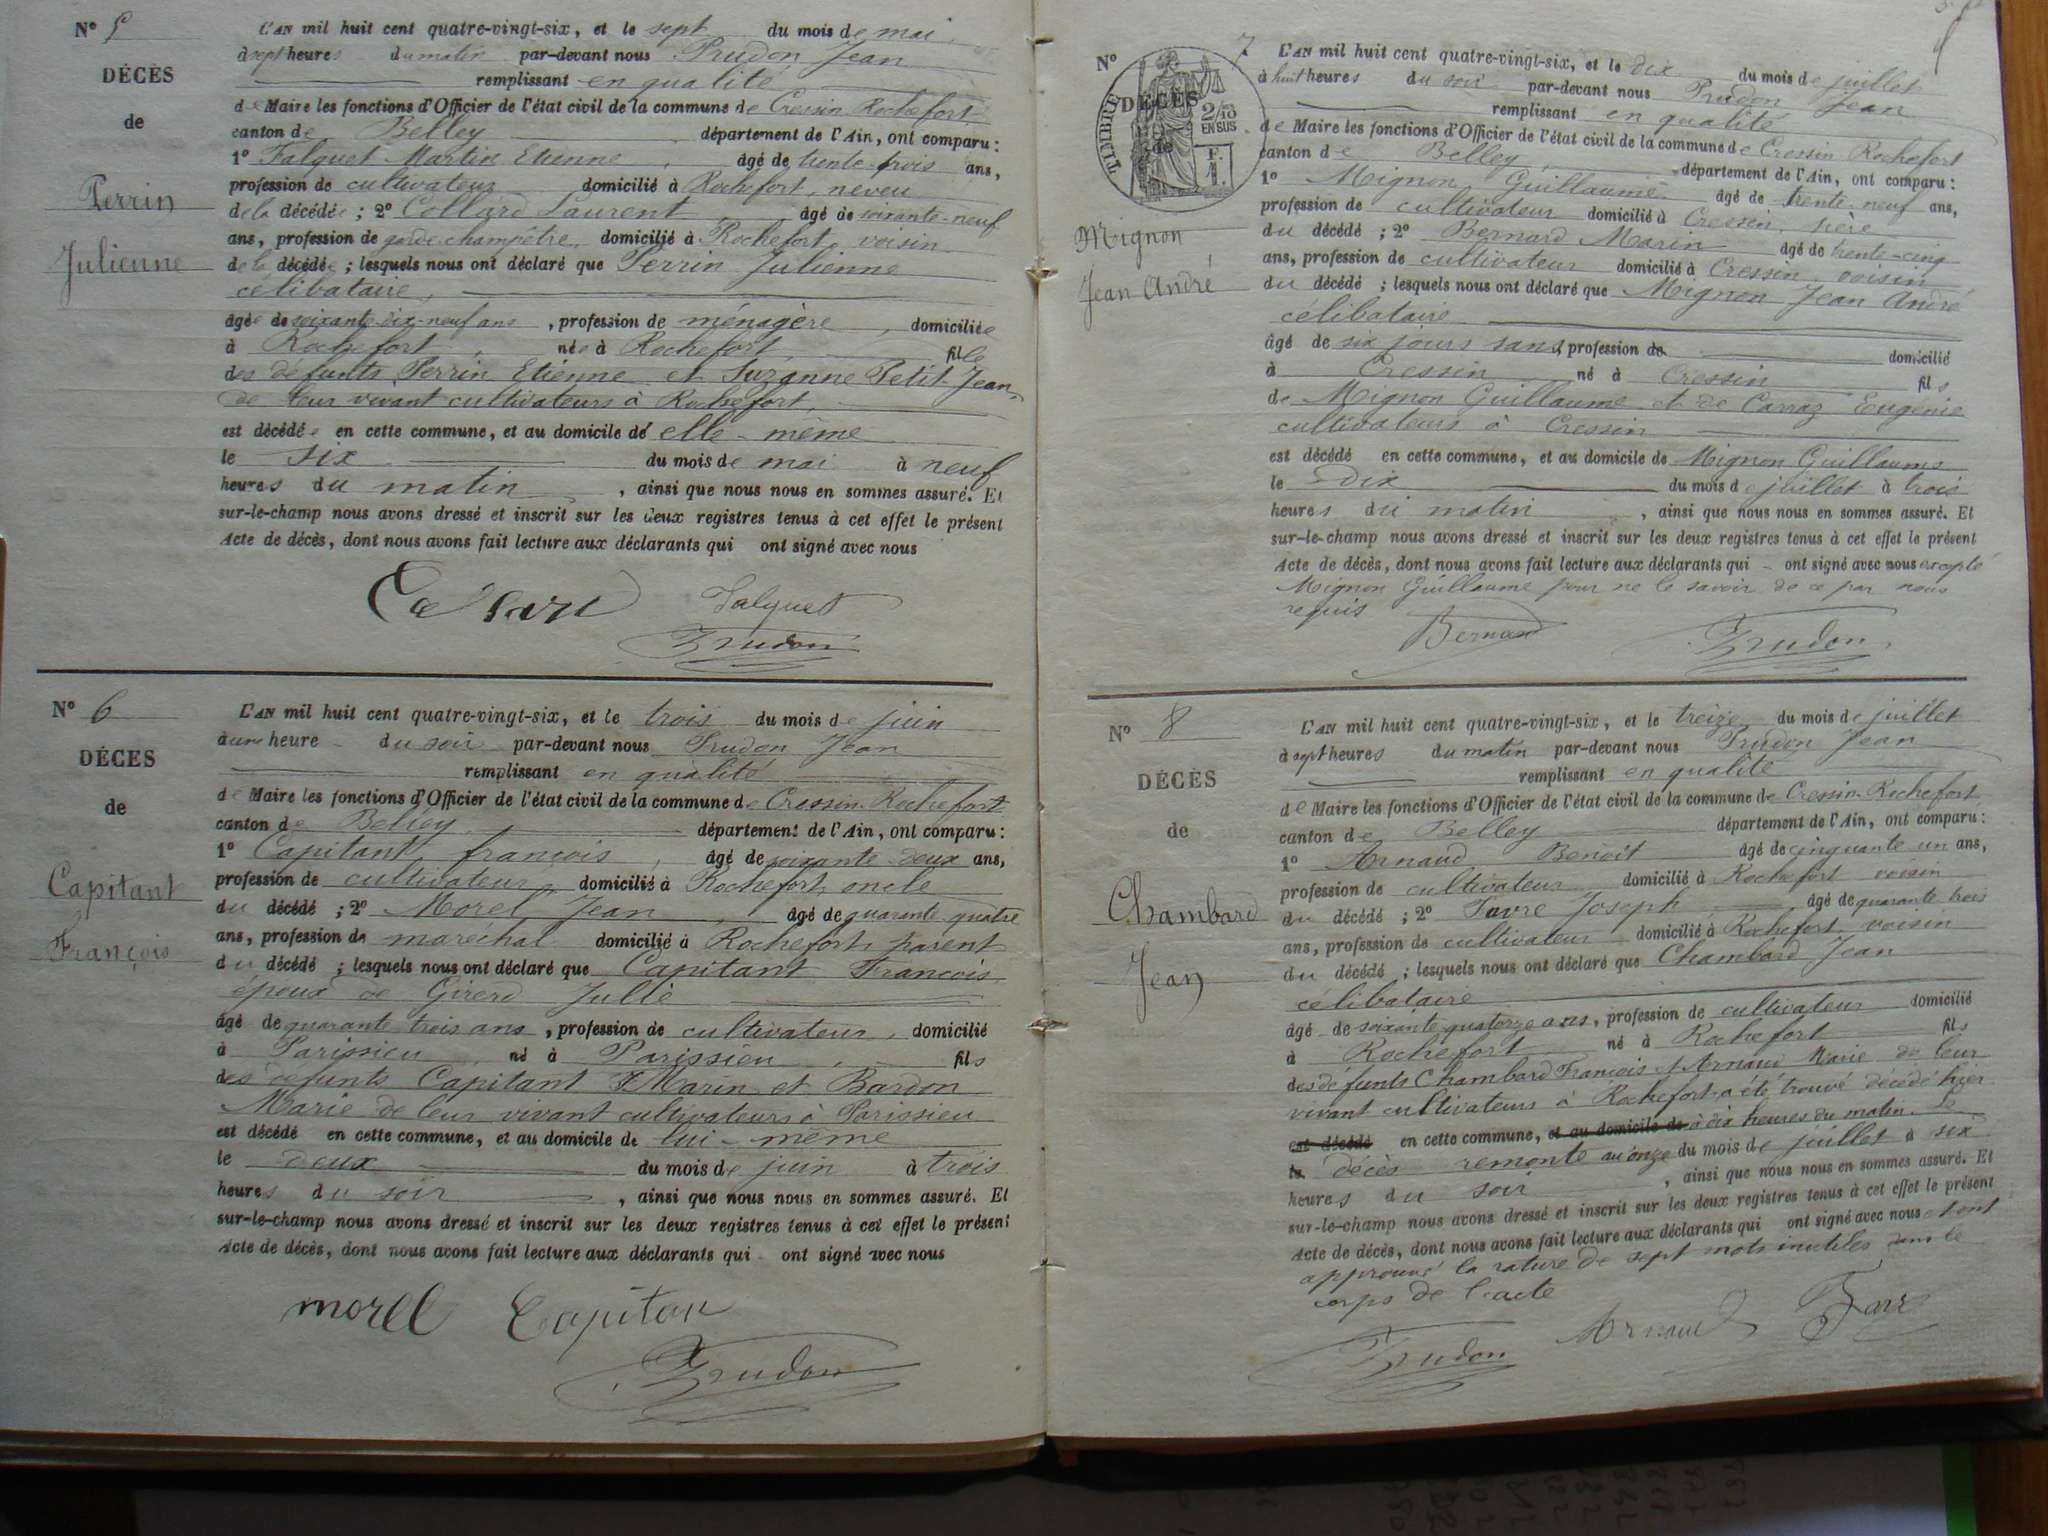 N° 5
DÉCÈS
de
Perrin
Julienne
L'AN mil huit cent quatre-vingt-six, et le sept du mois de mai
à sept heures du matin par-devant nous Prudon Jean
remplissant en qualité
de Maire les fonctions d'Officier de l'état civil de la commune de Cressin Rochefort
canton de Belley département de l'Ain, ont comparu :
1° Falquet Martin Etienne, âgé de trente-trois ans,
profession de cultivateur domicilié à Rochefort, neveu
de la décédée ; 2° Collard Laurent âgé de soixante-neuf
ans, profession de garde champêtre, domicilié à Rochefort, voisin
de la décédée ; lesquels nous ont déclaré que Perrin Julienne
célibataire,
âgée de soixante-dix-neuf ans, profession de ménagère, domiciliée
à Rochefort, née à Rochefort, fille
des défunts Perrin Etienne et Suzanne Petit-Jean,
de leur vivant cultivateurs à Rochefort,
est décédée en cette commune, et au domicile de elle-même
le six du mois de mai à neuf
heures du matin, ainsi que nous nous en sommes assuré. Et
sur-le-champ nous avons dressé et inscrit sur les deux registres tenus à cet effet le présent
Acte de décès, dont nous avons fait lecture aux déclarants qui ont signé avec nous
Falquet
Prudon
N° 6
DÉCES
de
Capitant
François
L'AN mil huit cent quatre-vingt-six, et le trois du mois de juin
à une heure du soir par-devant nous Prudon Jean
remplissant en qualité
de Maire les fonctions d'Officier de l'état civil de la commune de Cressin-Rochefort
canton de Belley département de l'Ain, ont comparu :
1° Capitant françois, âgé de soixante-deux ans,
profession de cultivateur, domicilié à Rochefort, oncle
du décédé ; 2° Morel Jean, âgé de quarante quatre
ans, profession de maréchal domicilié à Rochefort, parent
du décédé ; lesquels nous ont déclaré que Capitant François
époux de Girerd Julie
âgé de quarante trois ans, profession de cultivateur, domicilié
à Parissieu, né à Parissieu, fils
des défunts Capitant Marin et Bardon
Marie de leur vivant cultivateurs à Parissieu
est décédé en cette commune, et au domicile de lui-même
le deux du mois de juin à trois
heures du soir, ainsi que nous nous en sommes assuré. Et
sur-le-champ nous avons dressé et inscrit sur les deux registres tenus à cet effet le présent
Acte de décès, dont nous avons fait lecture aux déclarants qui ont signé avec nous
morel Capitan
Prudon
N° 7
TIMBRE
2/10
EN SUS
F.
1.
DÉCÈS
de
Mignon
Jean André
L'AN mil huit cent quatre-vingt-six, et le dix du mois de juillet
à huit heures du soir par-devant nous Prudon Jean
remplissant en qualité
de Maire les fonctions d'Officier de l'état civil de la commune de Cressin-Rochefort
canton de Belley département de l'Ain, ont comparu :
1° Mignon Guillaume âgé de trente-neuf ans,
profession de cultivateur domicilié à Cressin, père
du décédé ; 2° Bernard Marin âgé de trente-cinq
ans, profession de cultivateur domicilié à Cressin, voisin
du décédé ; lesquels nous ont déclaré que Mignon Jean André
célibataire
âgé de six jours sans profession de domicilié
à Cressin né à Cressin fils
de Mignon Guillaume et de Carraz Eugénie
cultivateurs à Cressin
est décédé en cette commune, et au domicile de Mignon Guillaume
le Dix du mois de juillet à trois
heures du matin, ainsi que nous nous en sommes assuré. Et
sur-le-champ nous avons dressé et inscrit sur les deux registres tenus à cet effet le présent
Acte de décès, dont nous avons fait lecture aux déclarants qui ont signé avec nous excepté
Mignon Guillaume pour ne le savoir de ce par nous
requis
Bernard Prudon
N° 8
DÉCÈS
de
Chambard
Jean
L'AN mil huit cent quatre-vingt-six, et le treize du mois de juillet
à sept heures du matin par-devant nous Prudon Jean
remplissant en qualité
de Maire les fonctions d'Officier de l'état civil de la commune de Cressin-Rochefort
canton de Belley département de l'Ain, ont comparu :
1° Arnaud Benoit âgé de cinquante un ans,
profession de cultivateur domicilié à Rochefort voisin
du décédé ; 2° Favre Joseph, âgé de quarante trois
ans, profession de cultivateur domicilié à Rochefort, voisin
du décédé ; lesquels nous ont déclaré que Chambard Jean
célibataire
âgé de soixante quatorze ans, profession de cultivateur domicilié
à Rochefort né à Rochefort fils
des défunts Chambard François et Arnaud Marie de leur
vivant cultivateurs à Rochefort a été trouvé décédé hier
est décédé en cette commune, et au domicile de à dix heures du matin. Le
le décès remonte au onze du mois de juillet à six
heures du soir, ainsi que nous nous en sommes assuré. Et
sur-le-champ nous avons dressé et inscrit sur les deux registres tenus à cet effet le présent
Acte de décès, dont nous avons fait lecture aux déclarants qui ont signé avec nous et ont
approuvé la rature de sept mots inutiles dans le
corps de l'acte
Prudon Arnaud Favre